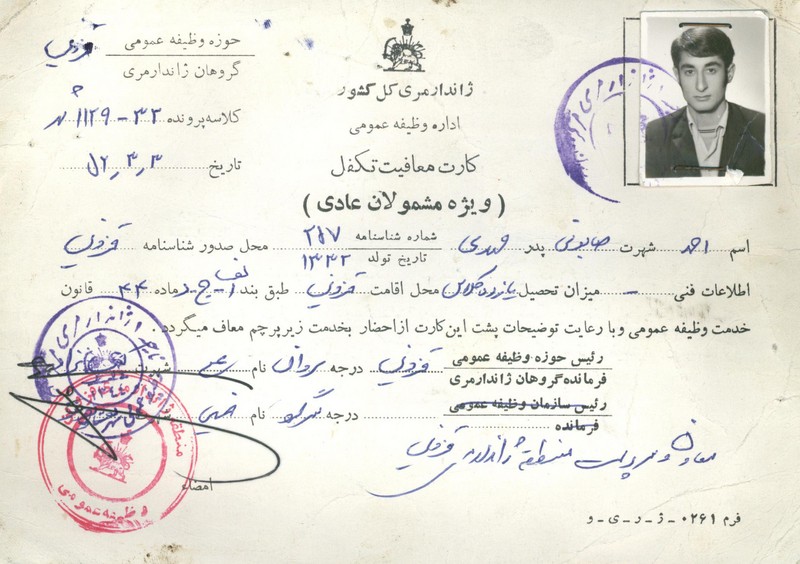 حوزه وظیفه عمومی قزوین
گروهان ژاندارمری
ژاندارمری کل کشور
کلاسه پرونده ۳۲-۱۱۲۹
اداره وظیفه عمومی
تاریخ ۵۲٫۳٫۳
کارت معافیت تکفل
( ویژه مشمولان عادی )
اسم احمد شهرت صابونی پدر مهدی شماره شناسنامه ۲۸۷ محل صدور شناسنامه قزوین
تاریخ تولد ۱۳۳۲
اطلاعات فنی - میزان تحصیل یازده کلاس محل اقامت قزوین طبق بند ماده ۴۴ قانون
خدمت وظیفه عمومی و با رعایت توضیحات پشت این کارت از احضار بخدمت زیر پرچم معاف میگردد
رئیس حوزه وظیفه عمومی قزوین درجه سروان نام شهرت
فرمانده گروهان ژاندارمری
رئیس سازمان وظیفه عمومی درجه نام
فرمانده
معاون و سرپرست منطقه ژاندارمری قزوین
امضاء
منطقه ژاندارمری
وظیفه عمومی
فرم ۰۲۶۱ - ژ - ر - ی - و